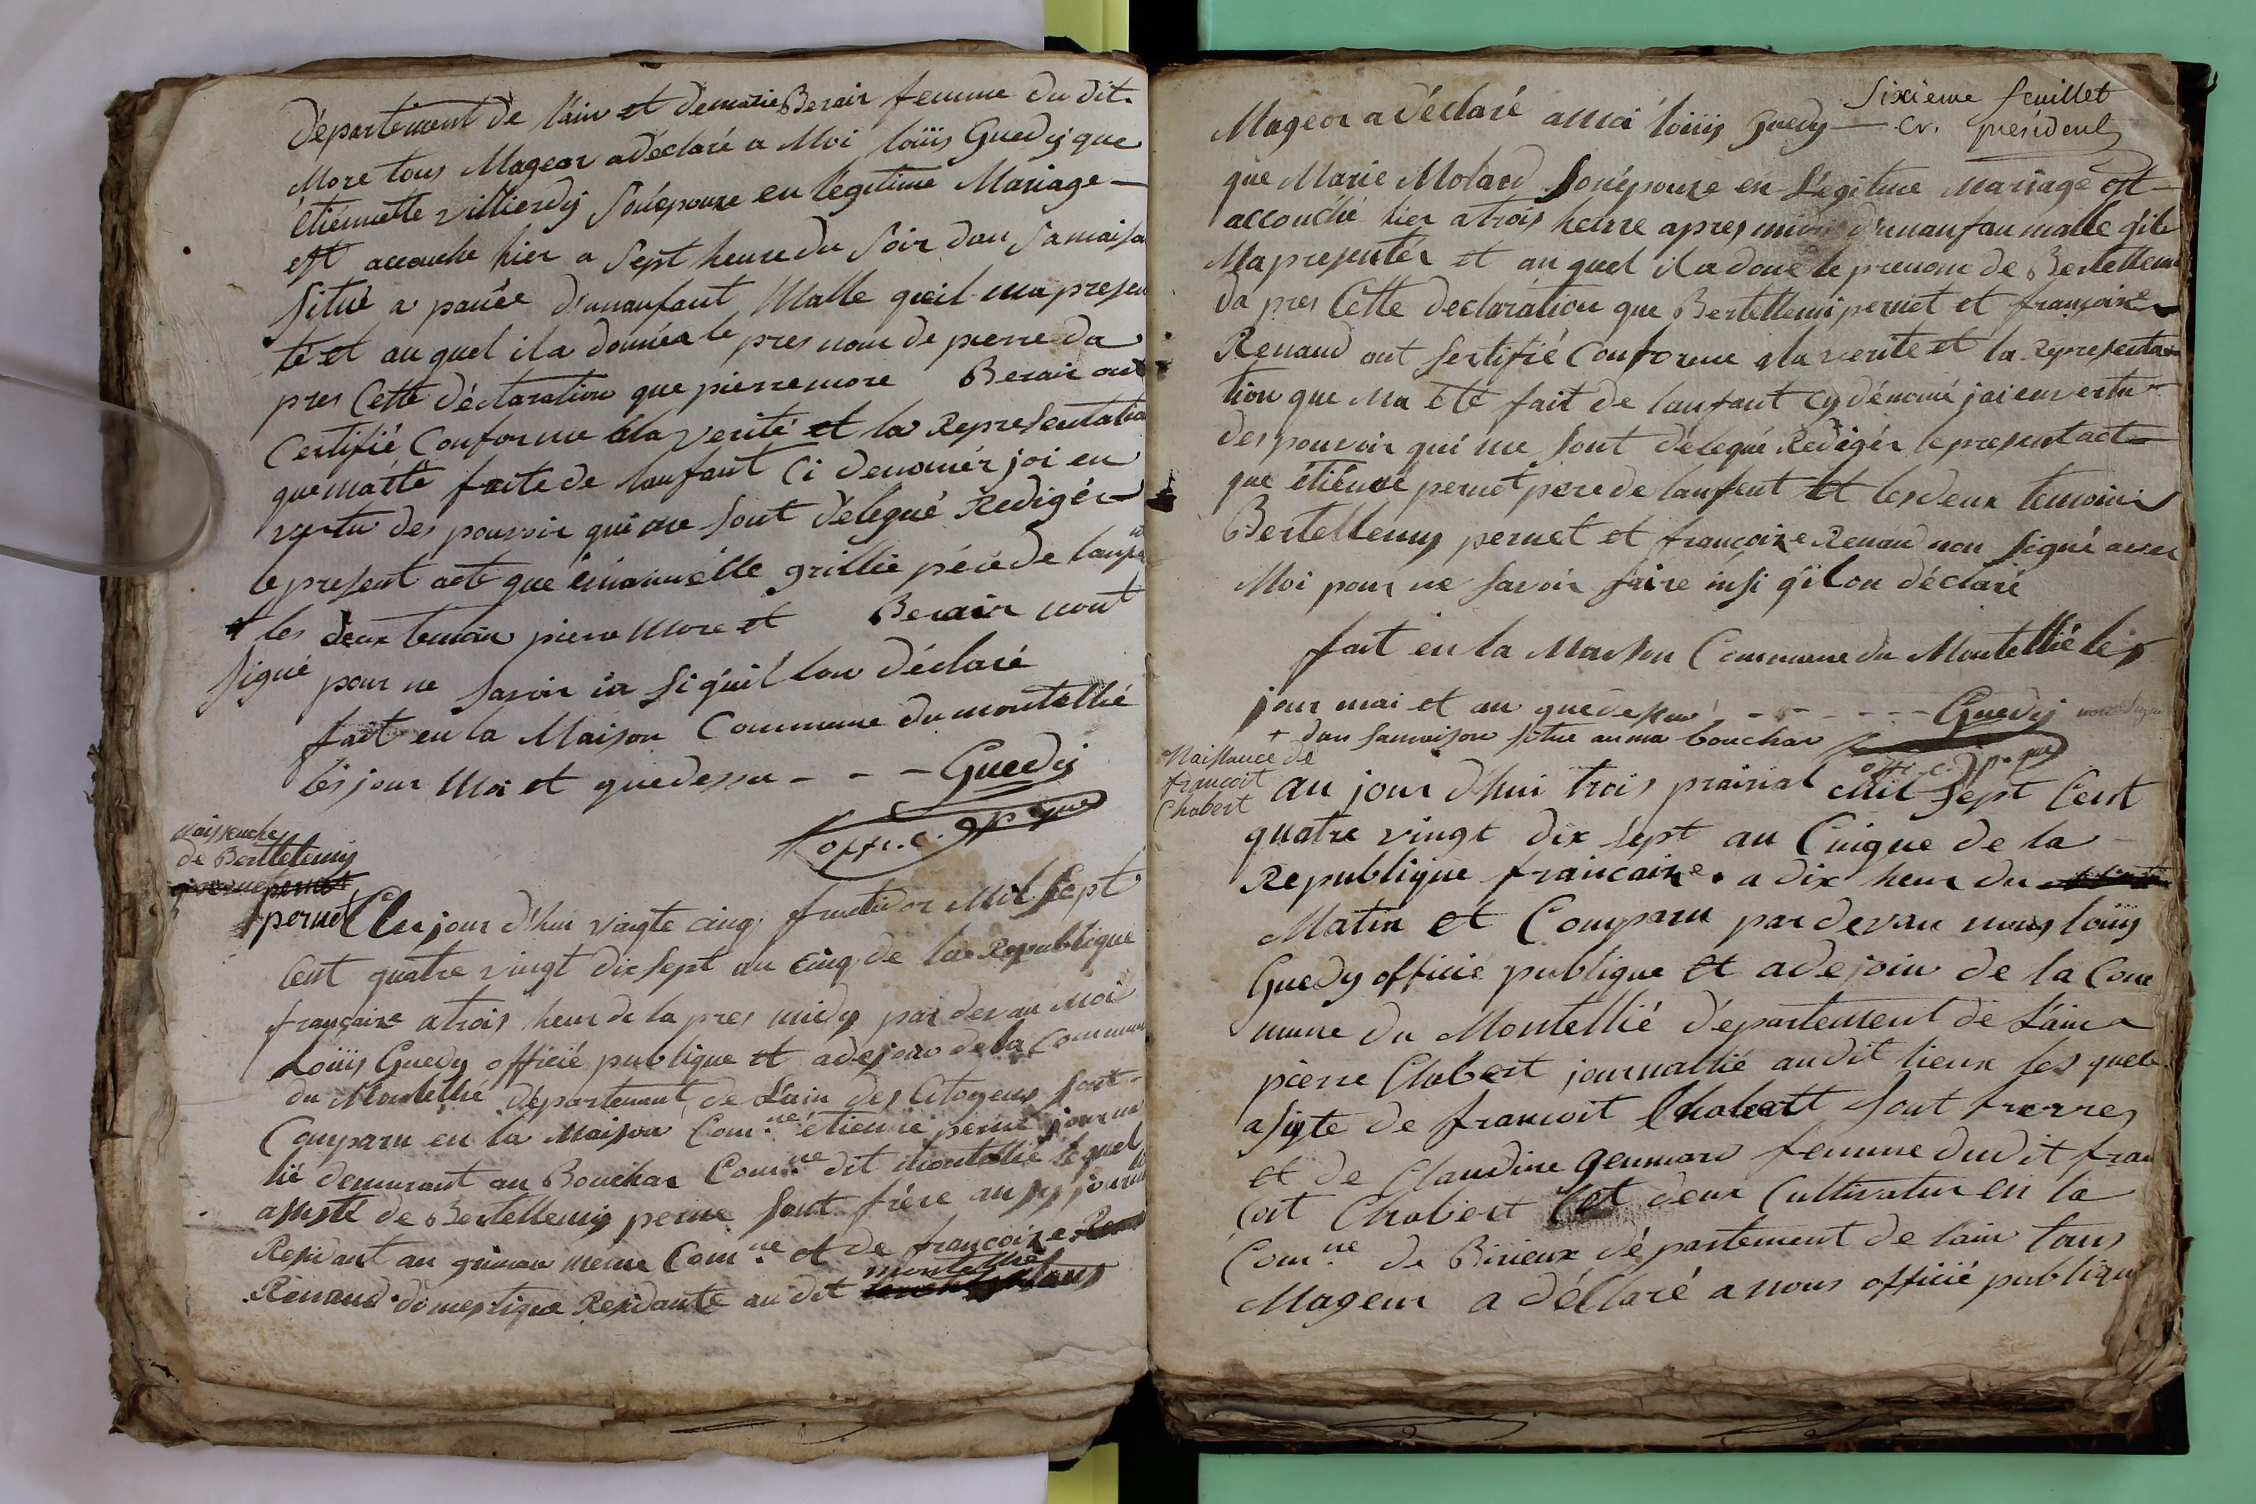 département de l'ain et demarie Berair femme du dit
More tous Mageor adéclaré a Moi loüis Guedy que
étiennette villierdy Sonépouze en légitime Mariage —
est accouche hier a Sept heure du Soir dan Samaiso
situé a panée d'unanfant Malle qu'il ma presen
té et au quel il a donnéa le pres nom de pierre da
pres Cette déclaration que pierre more Berair ont
Certifié Conforme ala verité et la Representatio
que máété faite de lanfant Ci denomér jai en
vertu des pouvoir qui me sont délegué Redigér
le présent acte que émanuélle grillié pére de lanfa
et les deux temoin pierre More et Berair nont
signé pour ne savoir in si qu'il lon déclaré
fait en la Maison Commune du montellié
les jour Moi et quedessu - - - Guedy
offi. c. p. que
Naissenche
de Bertelemy
pernet
Au jour d'hui vingte cinq fructidor Mil Sept
Cent quatre vingt dix sept au Cinq de la Republique
françaize a trois heur de la pres midy par devan Moi
Loüis Guedy officié publique et adejoin de la Commun
du Montellié département de L'ain des Citoyens sont
Comparu en la Maison Com.ne étienne pernet journa
lié demurant au Bouchar Com.ne dit montellié le quel
assisté de Bertellemy pernet sont frére au sy journa
Residant au même Com.ne et de françoize
Renaud domestique Residante au dit montellié
Sixieme feuillet
cr. président
Mageor a déclaré amoi loüis Guedy —
que Marie Moland Sonépouze en Légitime mariage est —
accouché hier atrois heure apres midi d'unanfan malle qile
Mapresentér et au quel il a doné le prenom de Bertellemi
da pres Cette declaration que Bertellemi pernet et françoize
Renaud ont Sertifié Conforme ala verité et la representa
tion que Ma été fait de lanfant cy dénomé jai en vertu
des pouvoir qui me sont délegué Redigér le present acte
que étiénne pernet pere de lanfent et les deux temoins
Bertellemy pernet et françoize Renaud non signé avec
Moi pour ne savoir faire insi qilon déclaré
fait en la Maison Commune du Montellié les
jour moi et an quedessu - - - - - - Guedy
+ dan samaison situe auma bouchar
offi. c. p. que
Naissance de
francoit
Chabert
au jour d'hui trois prairial Mil Sept Cent
quatre vingt dix sept au Cinque de la
Republique francaize. a dix heur du
Matin et Comparu par devan nous loüis
Guedy officié publique et adejoin de la Com
mune du Montellié département de L'ain
pierre Chabert journallié au dit lieux les quel
asiste de francoit Chabert sont frerres
et de Claudine Genmard femme dud it fran
coit Chabert Cest deux Cultivatur en la
Com.ne de Birieux département de lain tous
Mageur a déclaré a nous officié publique